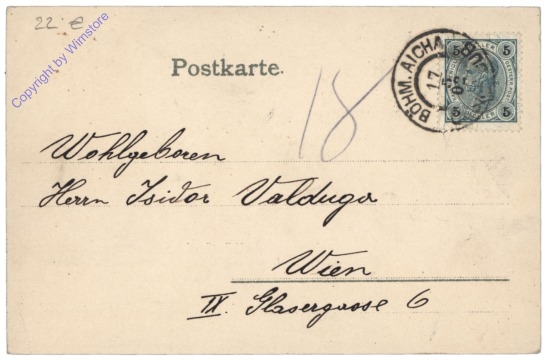 22 €
Copyright by Wimstore
Postkarte.
18
BÖHM. AICHA
17
5 5
5 5
Wohlgeboren
Herrn Isidor Valduga
Wien
IX. Glasergasse 6